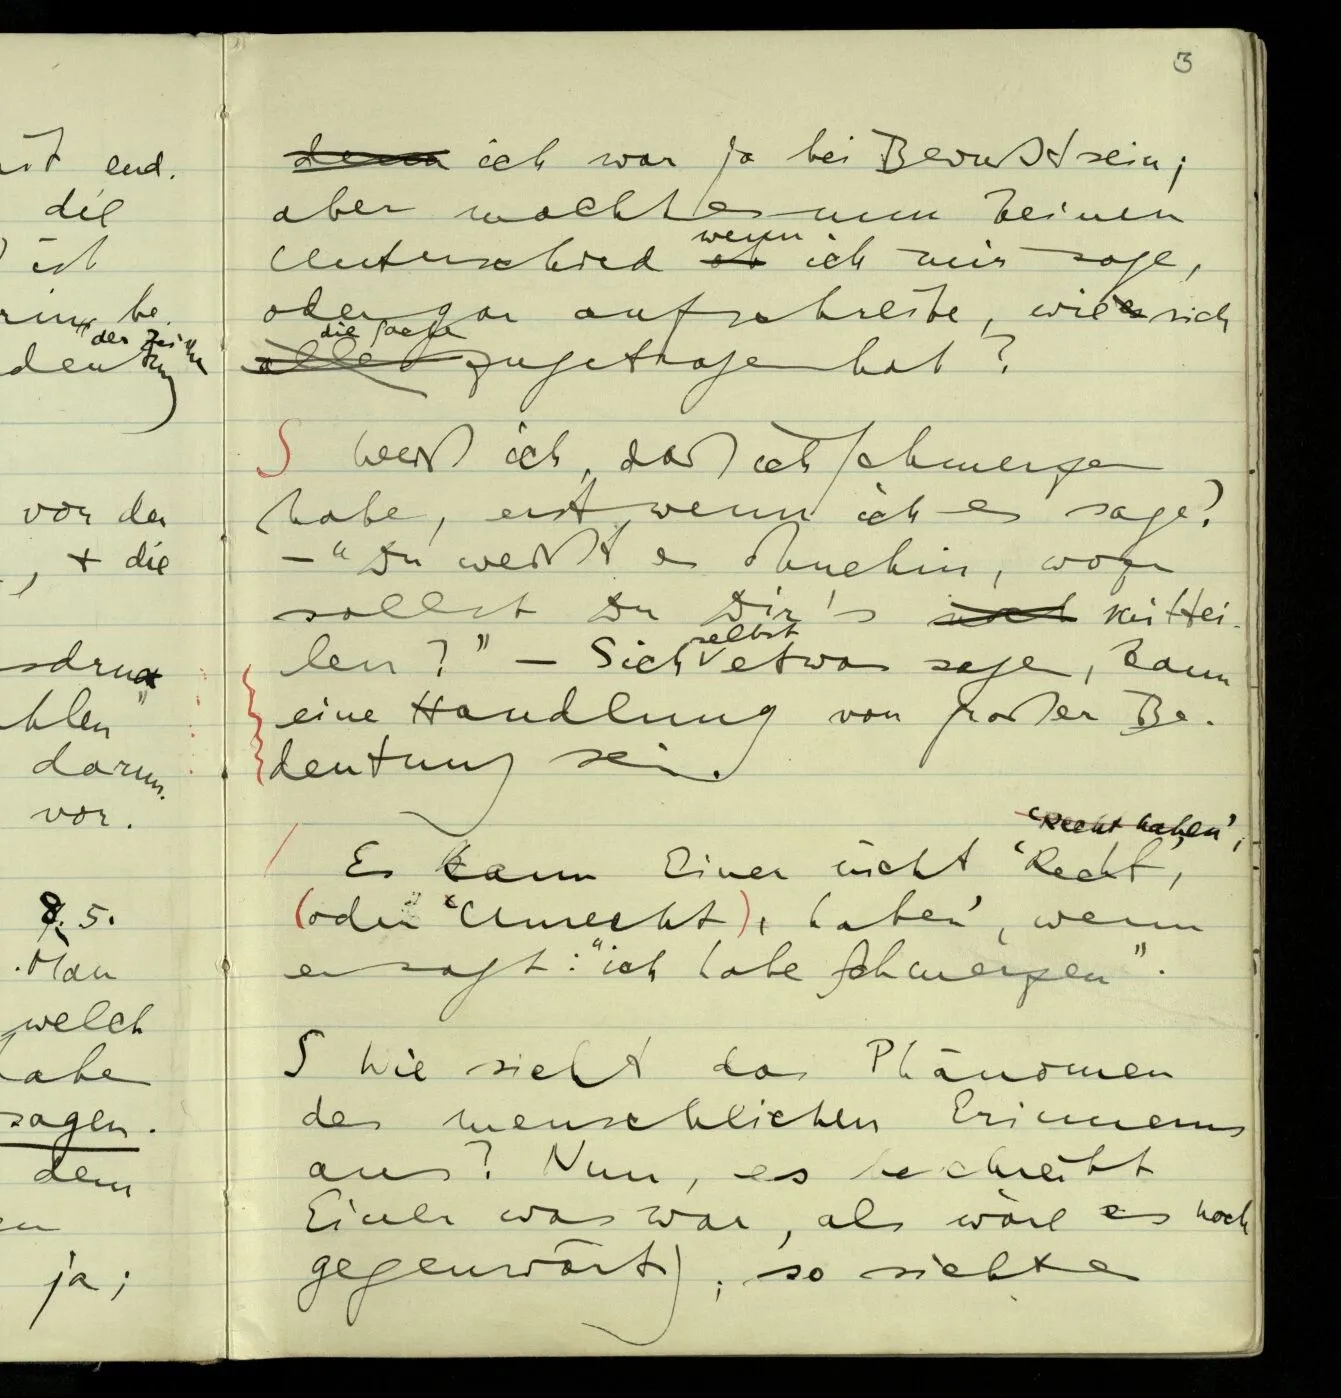 3
denn ich war ja bei Bewußtsein;
aber macht es nun keinen
Unterschied ob wenn ich mir sage,
oder gar aufschreibe, wie es sich
alles die Sache zugetragen hat?
S Weiß ich, daß ich Schmerzen
habe, erst wenn ich es sage?
– "Du weißt es ohnehin, wozu
sollst Du Dir's noch mittei-
len?" – Sich selbst etwas sagen, kann
eine Handlung von großer Be-
deutung sein.
'Recht haben',
/ Es kann Einer nicht 'Recht,
(oder 'Unrecht), haben', wenn
er sagt: "ich habe Schmerzen".
S Wie sieht das Phänomen
des menschlichen Erinnerns
aus? Nun, es beschreibt
Einer was war, als wäre es noch
gegenwärtig; so sieht es
end.
die
ist
be
der
vor der
, + die
darum.
vor.
8. 5.
Man
welch
habe
sagen.
dem
ja;